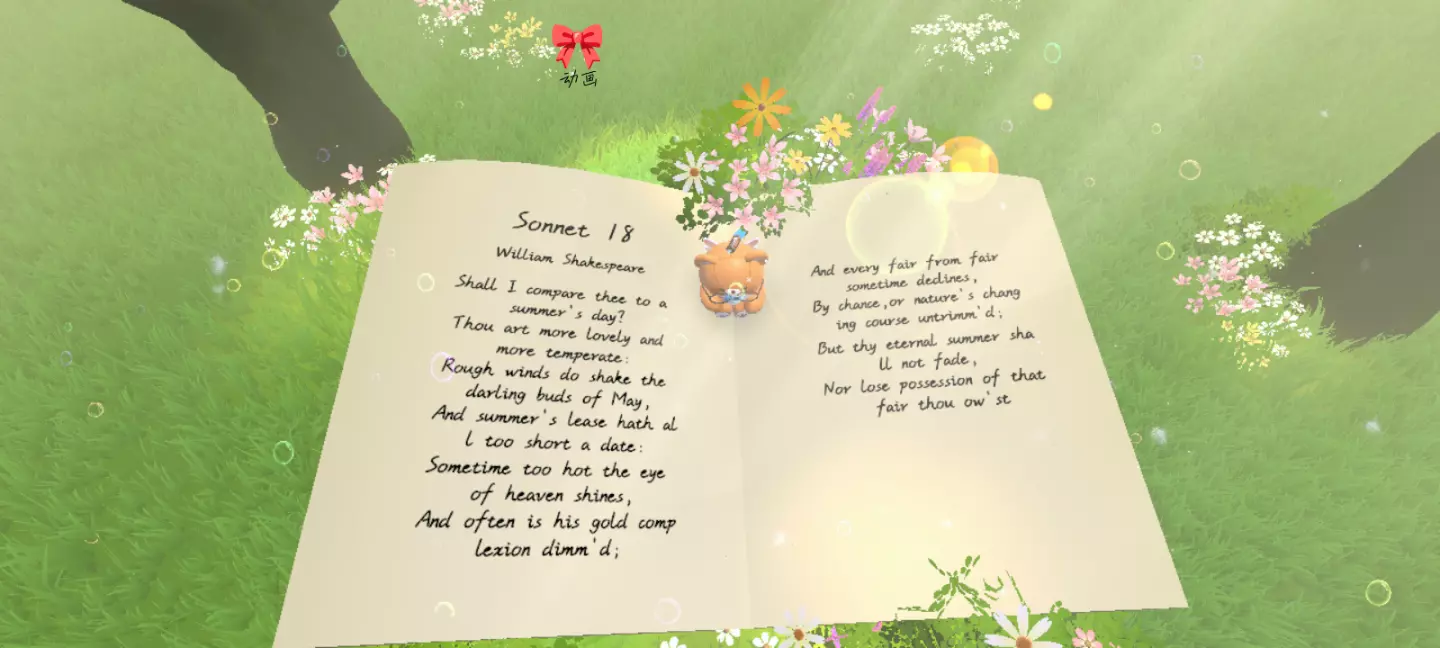 动画
Sonnet 18
William Shakespeare
Shall I compare thee to a
summer's day?
Thou art more lovely and
more temperate:
Rough winds do shake the
darling buds of May,
And summer's lease hath al
l too short a date:
Sometime too hot the eye
of heaven shines,
And often is his gold comp
lexion dimm'd;
And every fair from fair
sometime declines,
By chance,or nature's chang
ing course untrimm'd;
But thy eternal summer sha
ll not fade,
Nor lose possession of that
fair thou ow'st